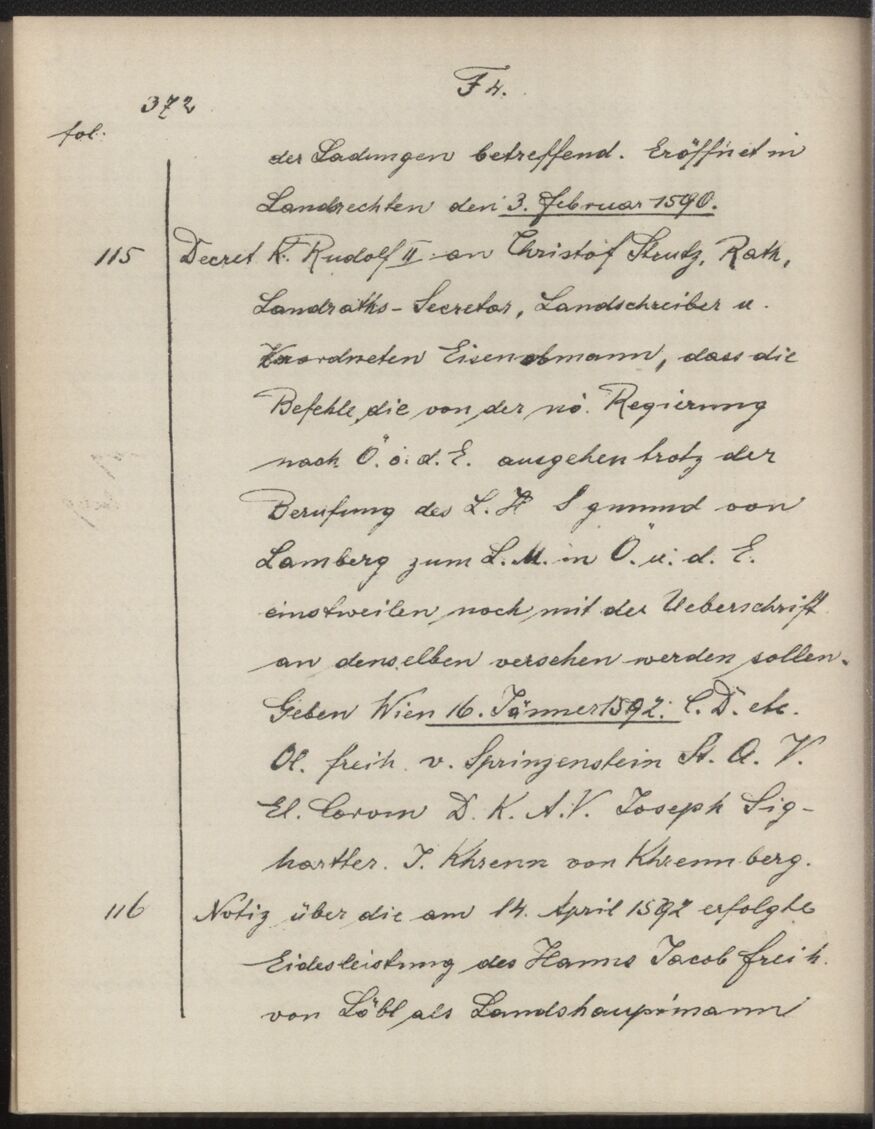 372
F 4.
fol.
der Ladungen betreffend. Eröffnet in
Landrechten den 3. Februar 1590.
115 Decret K. Rudolf II an Christof Strutz, Rath,
Landraths-Secretär, Landschreiber u.
Verordneten Eisenobmann, dass die
Befehle, die von der nö. Regierung
nach Ö. o. d. E. ausgehen trotz der
Berufung des L. H. Sigmund von
Lamberg zum L. M. in Ö. u. d. E.
einstweilen noch mit der Ueberschrift
an denselben versehen werden sollen.
Geben Wien 16. Jänner 1592. C. D. etc.
Ol. freih. v. Sprinzenstein St. A. V.
El. Corvin D. K. A. V. Joseph Sig-
hartler. J. Khrenn von Khrennberg.
116 Notiz über die am 14. April 1592 erfolgte
Eidesleistung des Hanns Jacob freih.
von Löbl als Landshauptmann